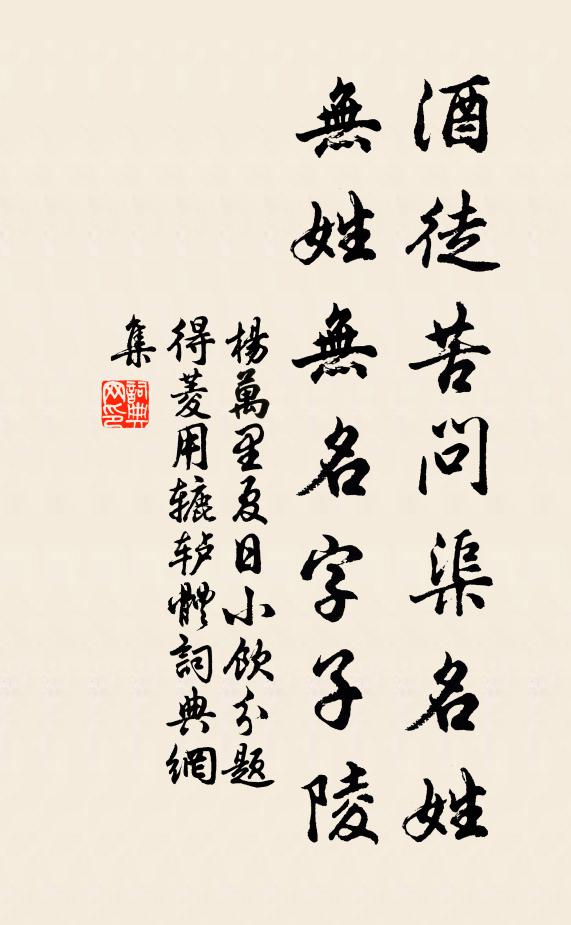 酒徒苦問渠名姓
無姓無名字子陵
楊萬里夏日小飲分题
得菱用辘轳體詞典網
集
詞典网印